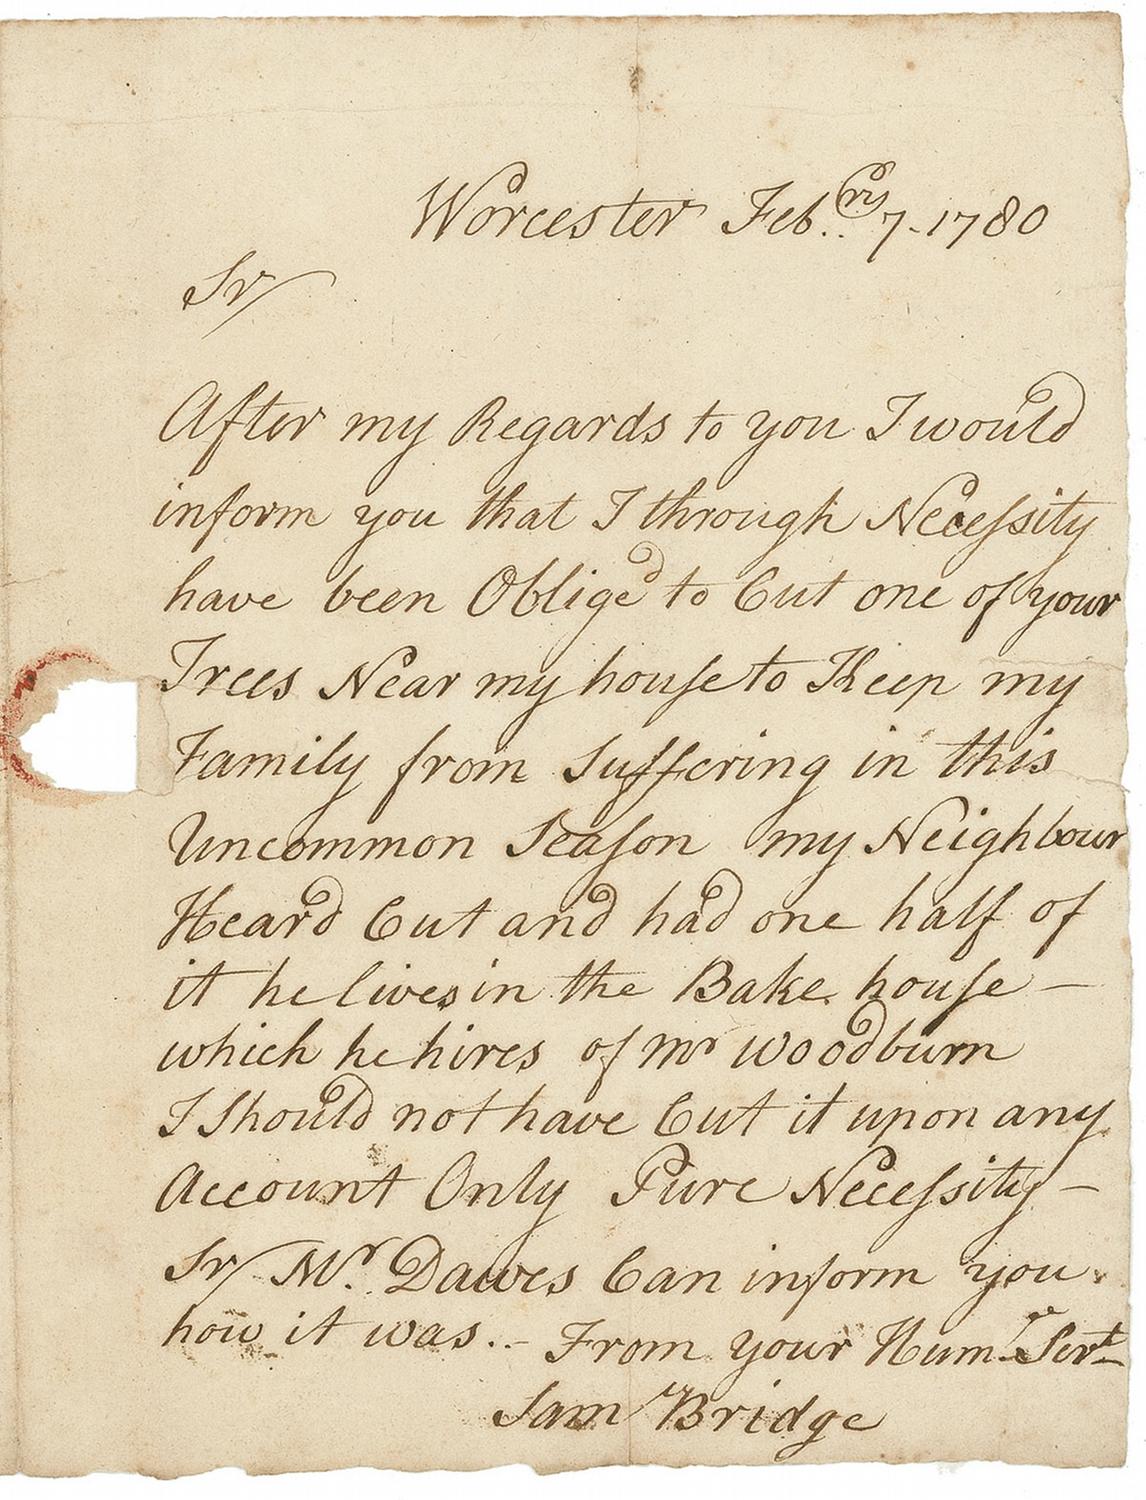 Worcester Feb.ry 7. 1780
Sr
After my Regards to you I would
inform you that I through Necessity
have been Obliged to Cut one of your
Trees Near my house to Keep my
Family from Suffering in this
Uncommon Season my Neighbour
Heard Cut and had one half of
it he lives in the Bake house —
which he hires of mr woodburn
I Should not have Cut it upon any
Account Only Pure Necessity —
Sr Mr. Dawes Can inform you
how it was. - From your Humr Sert
Sam Bridge